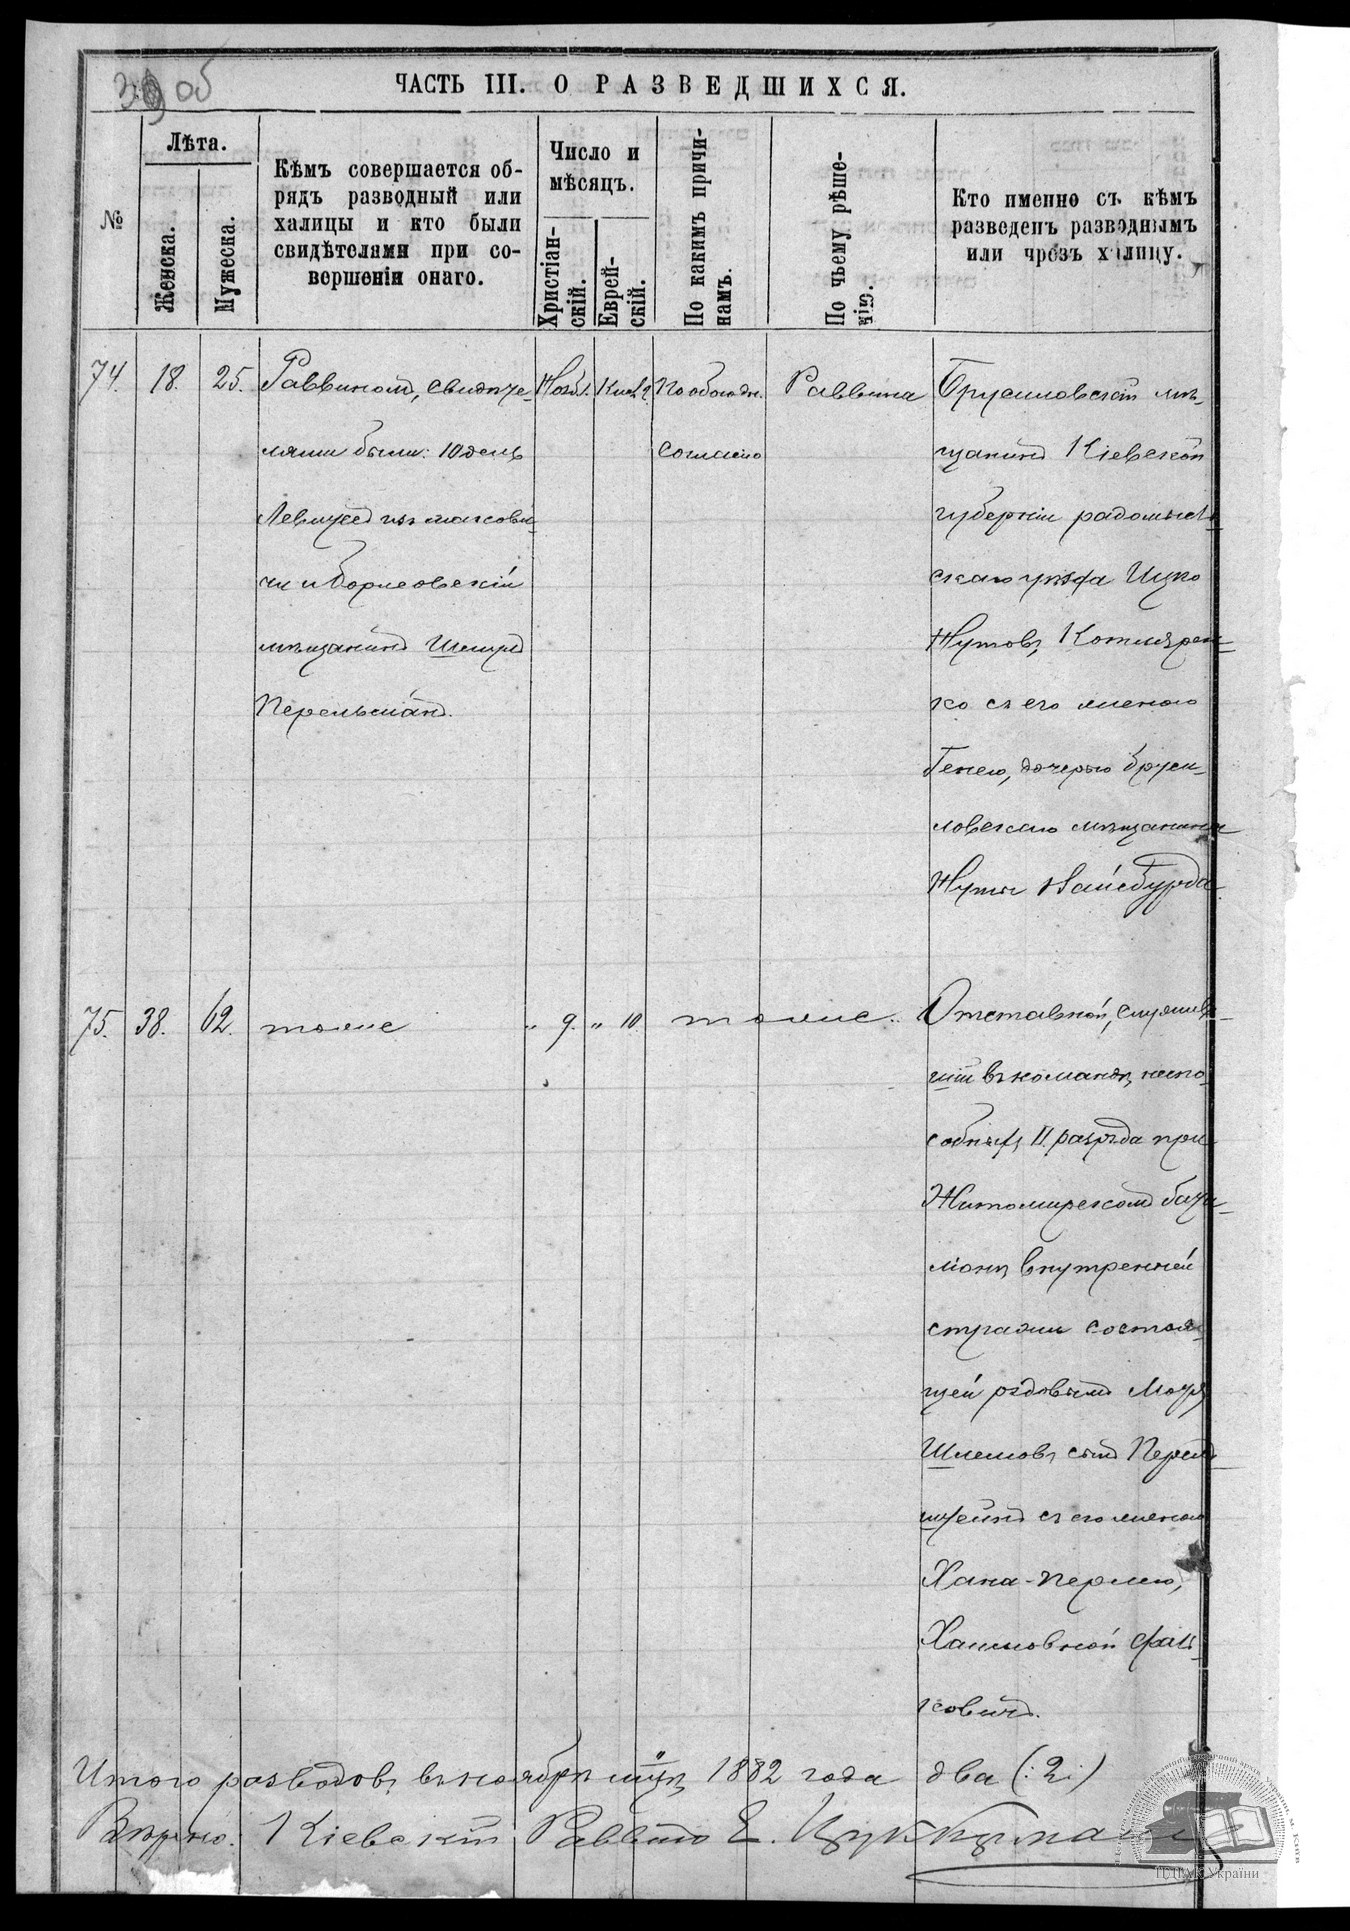 39 об
ЧАСТЬ III. О РАЗВЕДШИХСЯ.
№
Лѣта.
Женска.
Мужеска.
Кѣмъ совершается об-
рядъ разводный или
халицы и кто были
свидѣтелями при со-
вершеніи онаго.
Число и
мѣсяцъ.
Христіан-
скій.
Еврей-
скій.
По какимъ причи-
намъ.
По чьему рѣше-
нію.
Кто именно съ кѣмъ
разведенъ разводнымъ
или чрезъ халицу.
74.
18.
25.
Раввиномъ, свидѣте-
лями были:
мѣщанинъ Шмуль
Перельманъ.
Нояб.
по обоюдн.
согласію
Раввина
Брусиловскій мѣ-
щанинъ Кіевской
губерніи радомысль-
скаго уѣзда Ицко
Нутовъ Котлярен-
ко съ его женою
Генею, дочерью бруси-
ловскаго мѣщанина
Нуты Вайсбурда
75.
38.
62.
тоже
" 9.
" 10.
тоже
Отставной, служив-
шій въ командѣ неспо-
собныхъ II. разряда при
Житомирскомъ бата-
ліонѣ внутренней
стражи состоя-
щей рядовымъ
Шлемовъ сынъ
штейнъ съ его женою
Хана-Перлею,
Хаимовной Фаль-
ковичъ.
Итого разводовъ въ ноябрѣ м-цѣ 1882 года два (:2:)
Вѣрно: Кіевскій Раввинъ Е. Цуккерманъ
ЦДІАК України
м. Київ